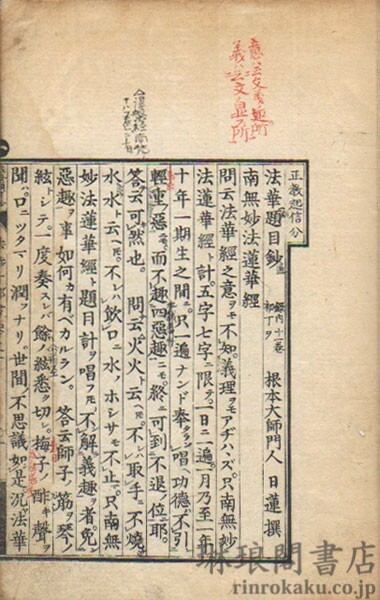 正教起信分
法華題目鈔
根本大師門人 日蓮 撰
南無妙法蓮華經
問云法華經之意ヲモ不知義理ヲモアヂハハズ只南無妙
法蓮華經ト計五字七字ニ限テ一日ニ一遍一月乃至一年
十年一期生之間ニ只一遍ナンド奉唱功德不引
輕重惡ニ而不趣四惡趣ニモ終ニ可到不退ノ位耶
答云可然也 問云火火ト云トモ不レハ取手ニ不燒
水水ト云ヘトモ不レハ飲口ニ水ノホシサモ不止只南無
妙法蓮華經ト題目計ヲ唱フトモ不解義趣者免レン
惡趣ヲ事如何カ有ベカルラン 答云師子ノ筋ヲ琴ノ
絃トシテ一度奏スレバ餘ノ絃悉ク切レ梅子ノ酢キ聲ヲ
聞ハ口ニツタマリ潤フナリ世間ノ不思議如是況法華
琳琅閣書店
rinrokaku.co.jp